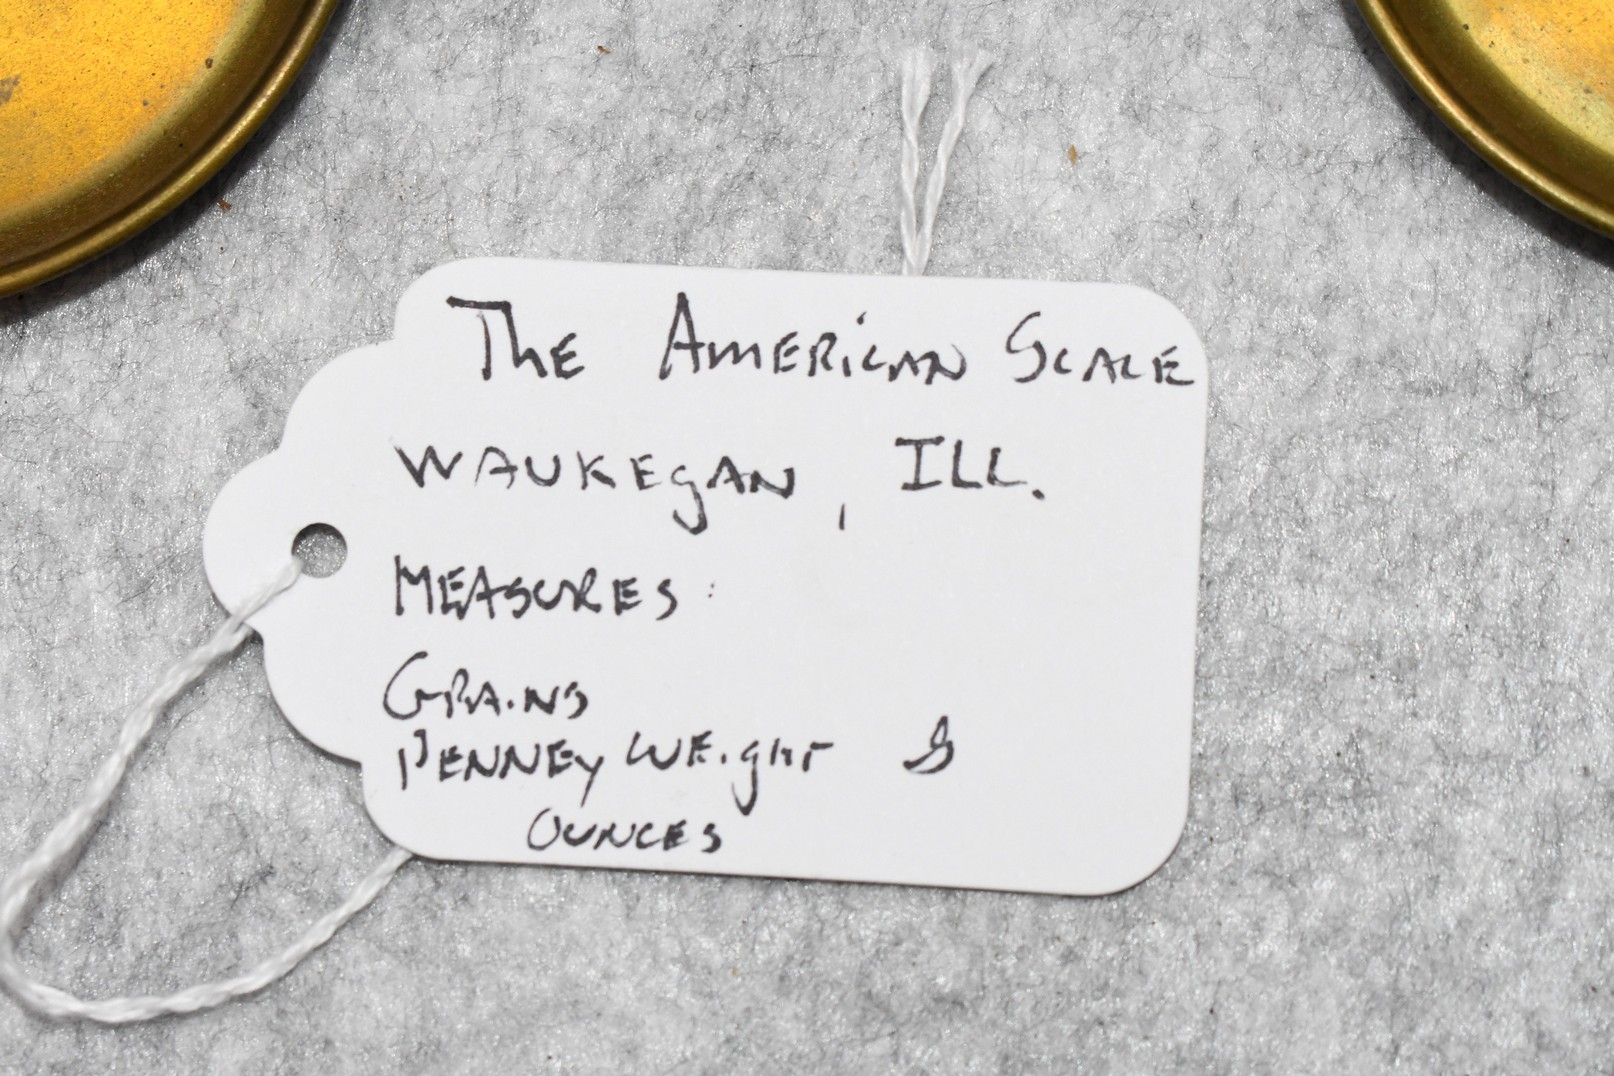 The American Scale
Waukegan, Ill.
Measures:
Grains
Penney Weight &
Ounces